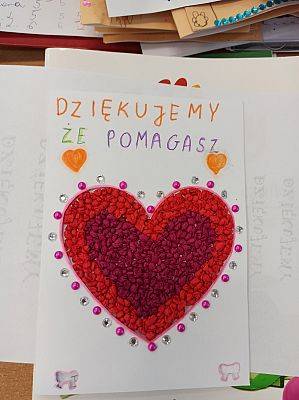 DZIĘKUJEMY
ŻE POMAGASZ